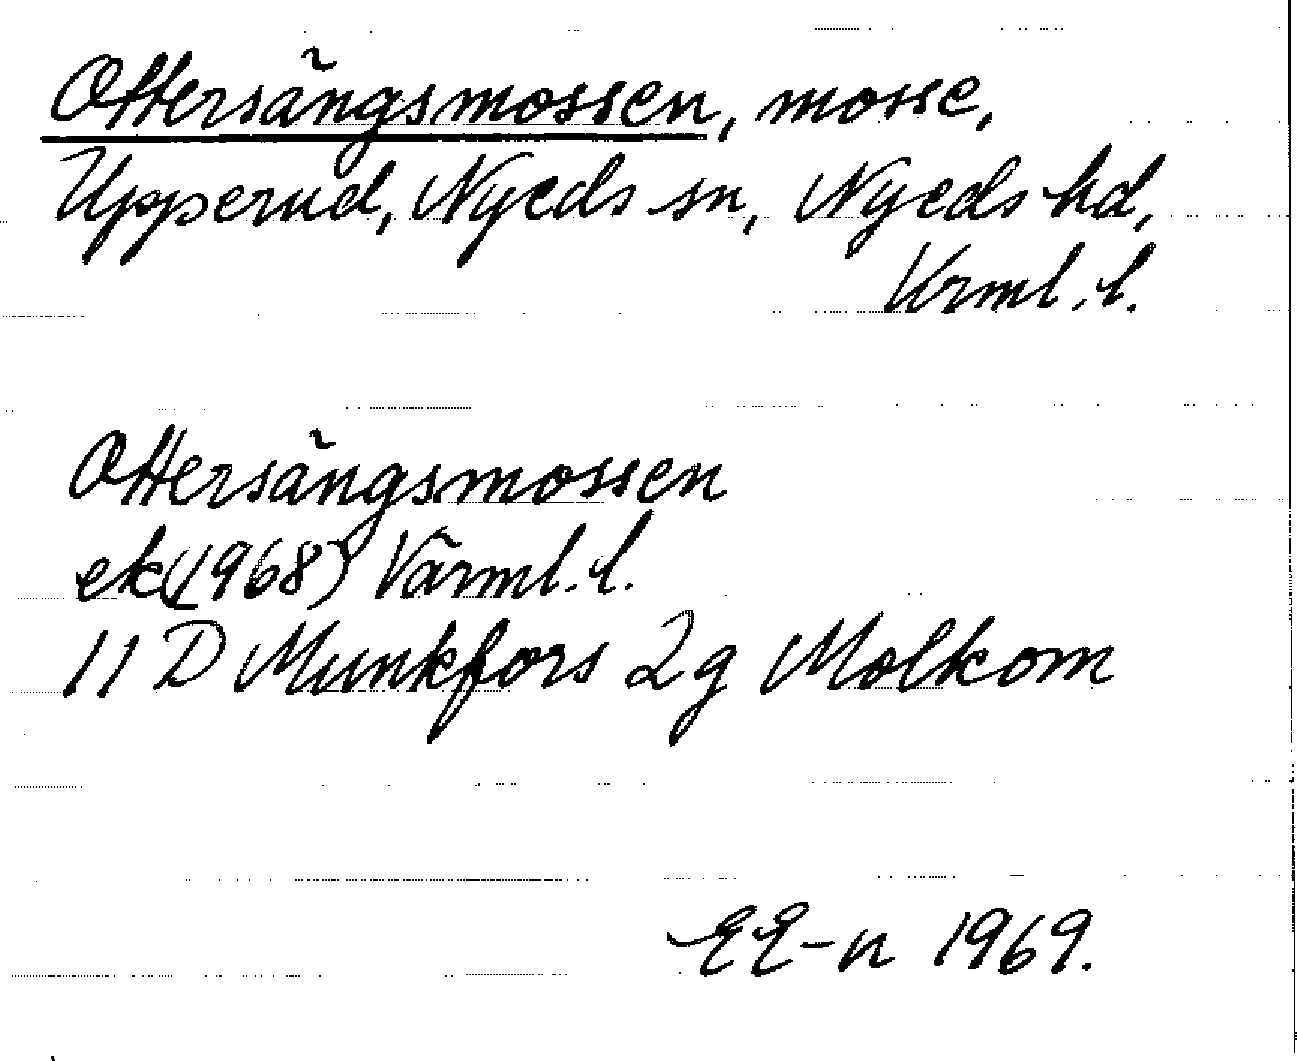 Ottersängsmossen, mosse,
Upperud, Nyeds sn, Nyeds hd,
Vrml. l.
Ottersängsmossen
ek(1968) Värml. l.
11 D Munkfors 2g Molkom
EE-n 1969.